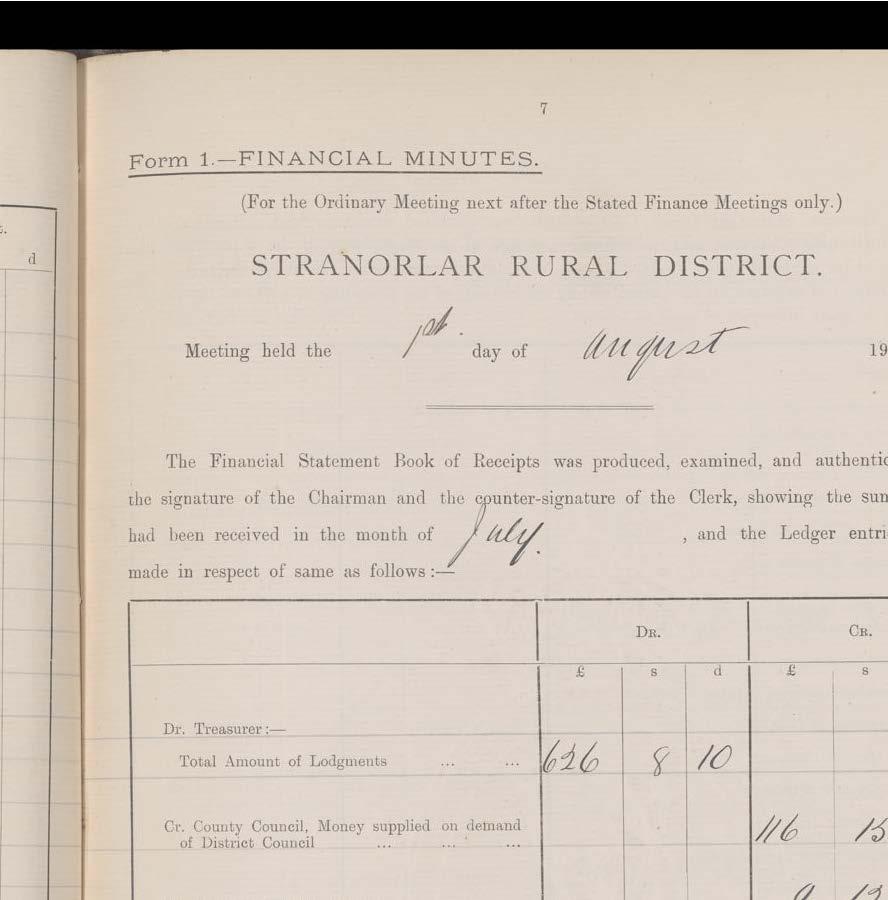 7
Form 1.—FINANCIAL MINUTES.
(For the Ordinary Meeting next after the Stated Finance Meetings only.)
STRANORLAR RURAL DISTRICT.
Meeting held the 1st. day of August 19
The Financial Statement Book of Receipts was produced, examined, and authentic
the signature of the Chairman and the counter-signature of the Clerk, showing the sum
had been received in the month of July. , and the Ledger entri
made in respect of same as follows :—
d
Dr. Cr.
£ s d £ s
Dr. Treasurer :—
Total Amount of Lodgments ... ... 626 8 10
Cr. County Council, Money supplied on demand
of District Council ... ... ... 116 15